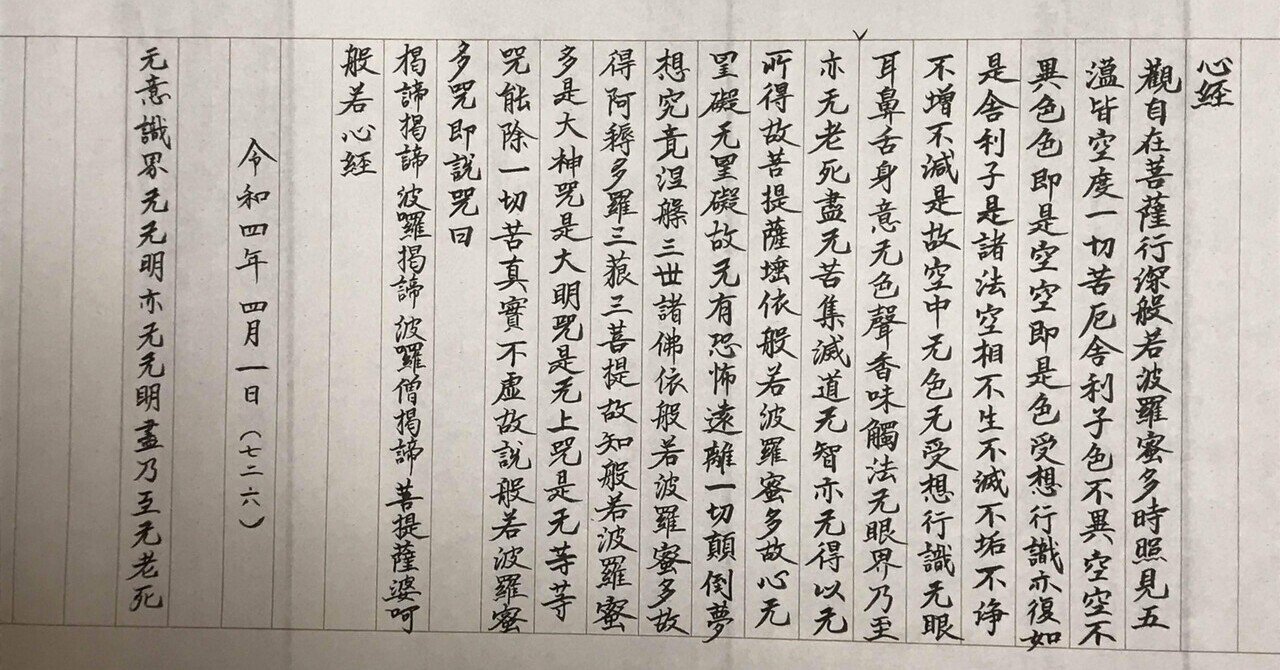 心経
觀自在菩薩行深般若波羅蜜多時照見五
薀皆空度一切苦厄舎利子色不異空空不
異色色即是空空即是色受想行識亦復如
是舎利子是諸法空相不生不滅不垢不浄
不增不減是故空中无色无受想行識无眼
耳鼻舌身意无色聲香味觸法无眼界乃至
亦无老死盡无苦集滅道无智亦无得以无
所得故菩提薩埵依般若波羅蜜多故心无
罣礙无罣礙故无有恐怖遠離一切顛倒夢
想究竟涅槃三世諸佛依般若波羅蜜多故
得阿耨多羅三藐三菩提故知般若波羅蜜
多是大神咒是大明咒是无上咒是无等等
咒能除一切苦真實不虚故説般若波羅蜜
多咒即説咒曰
揭諦揭諦 波囉揭諦 波囉僧揭諦 菩提薩婆呵
般若心経
令和四年 四月一日（七二六）
无意識界无无明亦无无明盡乃至无老死